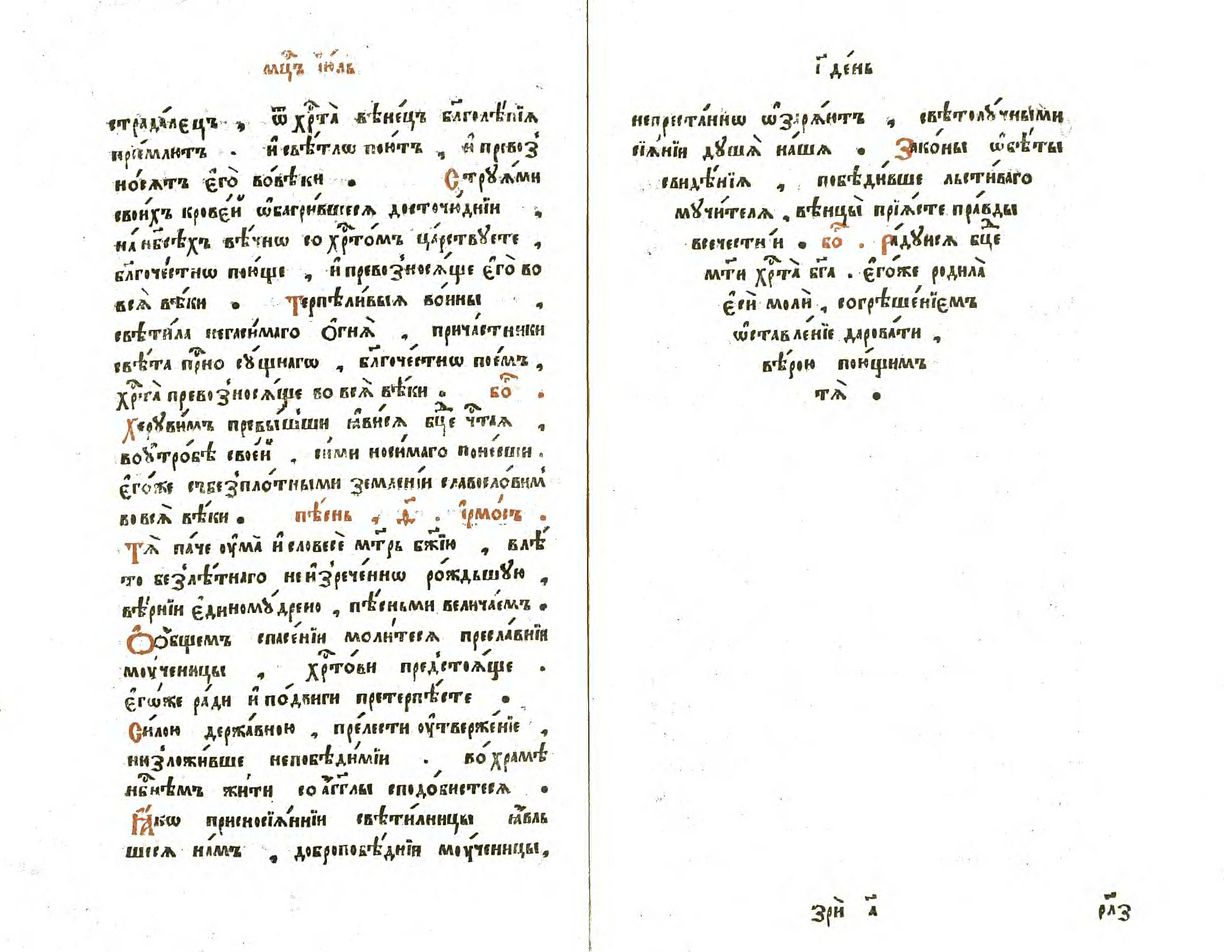 мц҃ъ і҆ю́ль
страда́лецъ , ѿ хр҇та̀ вѣне́цъ бл҃голѣ́пїѧ
прїе́млютъ . и҆ свѣ́тлѡ пою́тъ , и҆ превоз̾
но́сѧтъ є҆го̀ во вѣ́ки . Стрꙋѧ́ми
свои́хъ крове́й ѡ҆багри́вшесѧ досточю́днїи ,
на нб҃сѣ́хъ вѣ́чнѡ со хр҇то́мъ ца́рствꙋете ,
бл҃гоче́стнѡ пою́ще , и҆ превоз̾носѧ́ще є҆го̀ во
всѧ̀ вѣ́ки . Терпѣли́выѧ во́ины ,
свѣти́ла негаси́маго ѻ҆гнѧ̀ , прича́стники
свѣ́та пр҇но сꙋ́щнагѡ , бл҃гоче́стнѡ пое́мъ ,
хр҇та̀ превоз̾носѧ́ще во всѧ̀ вѣ́ки . бо҇ .
Херꙋви́мъ превы́шши ꙗ҆ви́сѧ бц҃е чт҇аѧ ,
во ᲂу҆тро́бѣ свое́й , си́ми носи́маго поне́сши .
є҆го́же съ без̾пло́тными земле́нїи славосло́вим̾
во всѧ̀ вѣ́ки . пѣ́снь , д҃ . і҆рмо́съ .
Тѧ̀ па́че ᲂу҆ма̀ и҆ словесѐ мт҃рь бж҃їю , в лѣ́
то без̾лѣ́тнаго неи҆з̾рече́ннѡ ро́ждьшꙋю ,
вѣ́рнїи є҆диномꙋ́дрено , пѣ́сньми велича́емъ .
Ѻ҆ о҆́бщемъ спасе́нїи моли́тесѧ пресла́внїи
мᲂу́ченицы , хр҇то́ви предстоѧ́ще .
є҆гѡ́же ра́ди и҆ по́двиги претерпѣ́сте .
Си́лою держа́вною , пре́лести ᲂу҆тверже́нїе ,
низложи́вше непобѣди́мїи . во хра́мѣ
нб҇нѣмъ жи́ти со а҆́гг҃лы сподо́бистесѧ .
Ꙗ҆́кѡ присносїѧ́ннїи свѣти́лницы ꙗ҆́вль
шесѧ на́мъ , доброповѣ́днїи мᲂу́ченицы,
і҃ де́нь
непреста́ннѡ ѡ҆зарѧ́ютъ , свѣтолꙋ́чными
сїѧ́нїи дꙋ́шѧ на́шѧ . Зако́ны ѡ҆бѣ́ты
свидѣ́нїѧ , побѣди́вше льсти́ваго
мꙋчи́телѧ , вѣнцы̀ прїѧ́сте пра́вды
всече́стнїи . бо҇ . Ра́дꙋисѧ бц҃е
мт҃и хр҇та̀ бг҃а . є҆го́же родила̀
є҆сѝ молѝ , согрѣше́нїемъ
ѡ҆ставле́нїе дарова́ти ,
вѣ́рою пою́щимъ
тѧ̀ .
зрѝ а҃
рл҃з